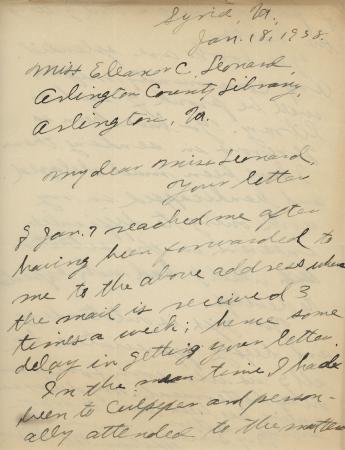 Syria, Va.
Jan. 18, 1938.
Miss Eleanor C. Leonard,
Arlington County Library,
Arlington, Va.
My dear Miss Leonard,
Your letter
of Jan. 7 reached me after
having been forwarded to
me to the above address where
the mail is received 3
times a week; hence some
delay in getting your letter.
In the mean time I had
been to Culpeper and person-
ally attended to the matter